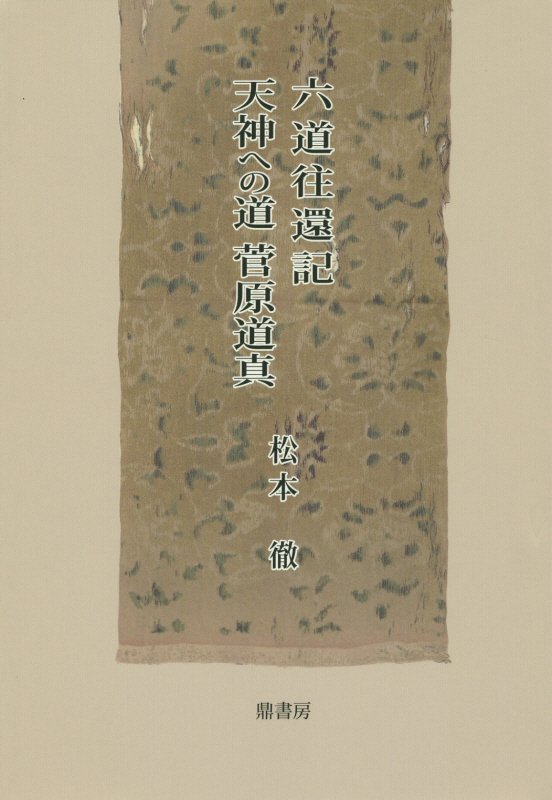 六道往還記
天神への道 菅原道真
松本 徹
鼎書房